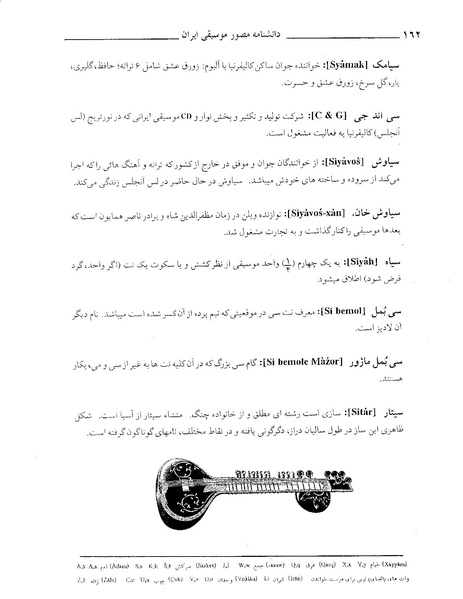 ۱۶۲ دانشنامه مصور موسیقی ایران
سیامک [Syâmak]: خواننده جوان ساکن کالیفرنیا با آلبوم: زورق عشق شامل ۶ ترانه؛ حافظ، گلپری،
یار، گل سرخ، زورق عشق و حسرت.
سی اند جی [C & G]: شرکت تولید و تکثیر و پخش نوار و CD موسیقی ایرانی که در نورتریج (لس
آنجلس) کالیفرنیا به فعالیت مشغول است.
سیاوش [Siyâvoš]: از خوانندگان جوان و موفق در خارج از کشور که ترانه و آهنگ هائی را که اجرا
می‌کند از سروده و ساخته های خودش میباشد. سیاوش در حال حاضر در لس آنجلس زندگی می‌کند.
سیاوش خان، [Siyâvoš-xân]: نوازنده ویلن در زمان مظفرالدین شاه و برادر ناصر همایون است که
بعدها موسیقی را کنار گذاشت و به تجارت مشغول شد.
سیاه [Siyâh]: به یک چهارم (۱/۴) واحد موسیقی از نظر کشش و یا سکوت یک نت (اگر واحد، گرد
فرض شود) اطلاق میشود.
سی بمل [Si bemol]: معرف نت سی در موقعیتی که نیم پرده از آن کسر شده است میباشد. نام دیگر
آن لادیز است.
سی بمل ماژور [Si bemole Mâžor]: گام سی بزرگ که در آن کلیه نت ها به غیر از سی و می، بکار
هستند.
سیتار [Sitâr]: سازی است رشته ای مطلق و از خانواده چنگ. منشاء سیتار از آسیا است. شکل
ظاهری این ساز در طول سالیان دراز، دگرگونی یافته و در نقاط مختلف، نامهای گوناگون گرفته است.